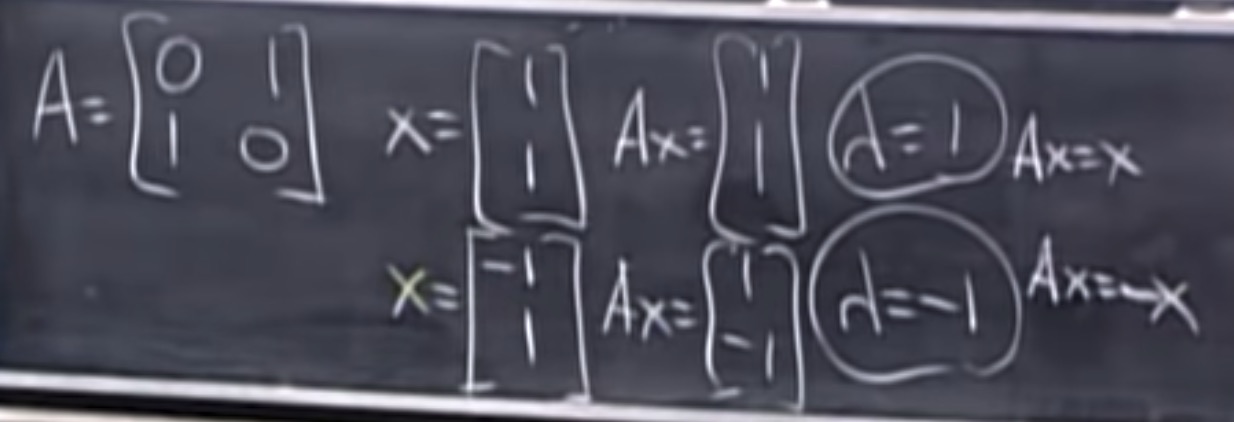 A = [0 1; 1 0] x = [1; 1] Ax = [1; 1] λ = 1 Ax = x
x = [-1; 1] Ax = [1; -1] λ = -1 Ax = -x